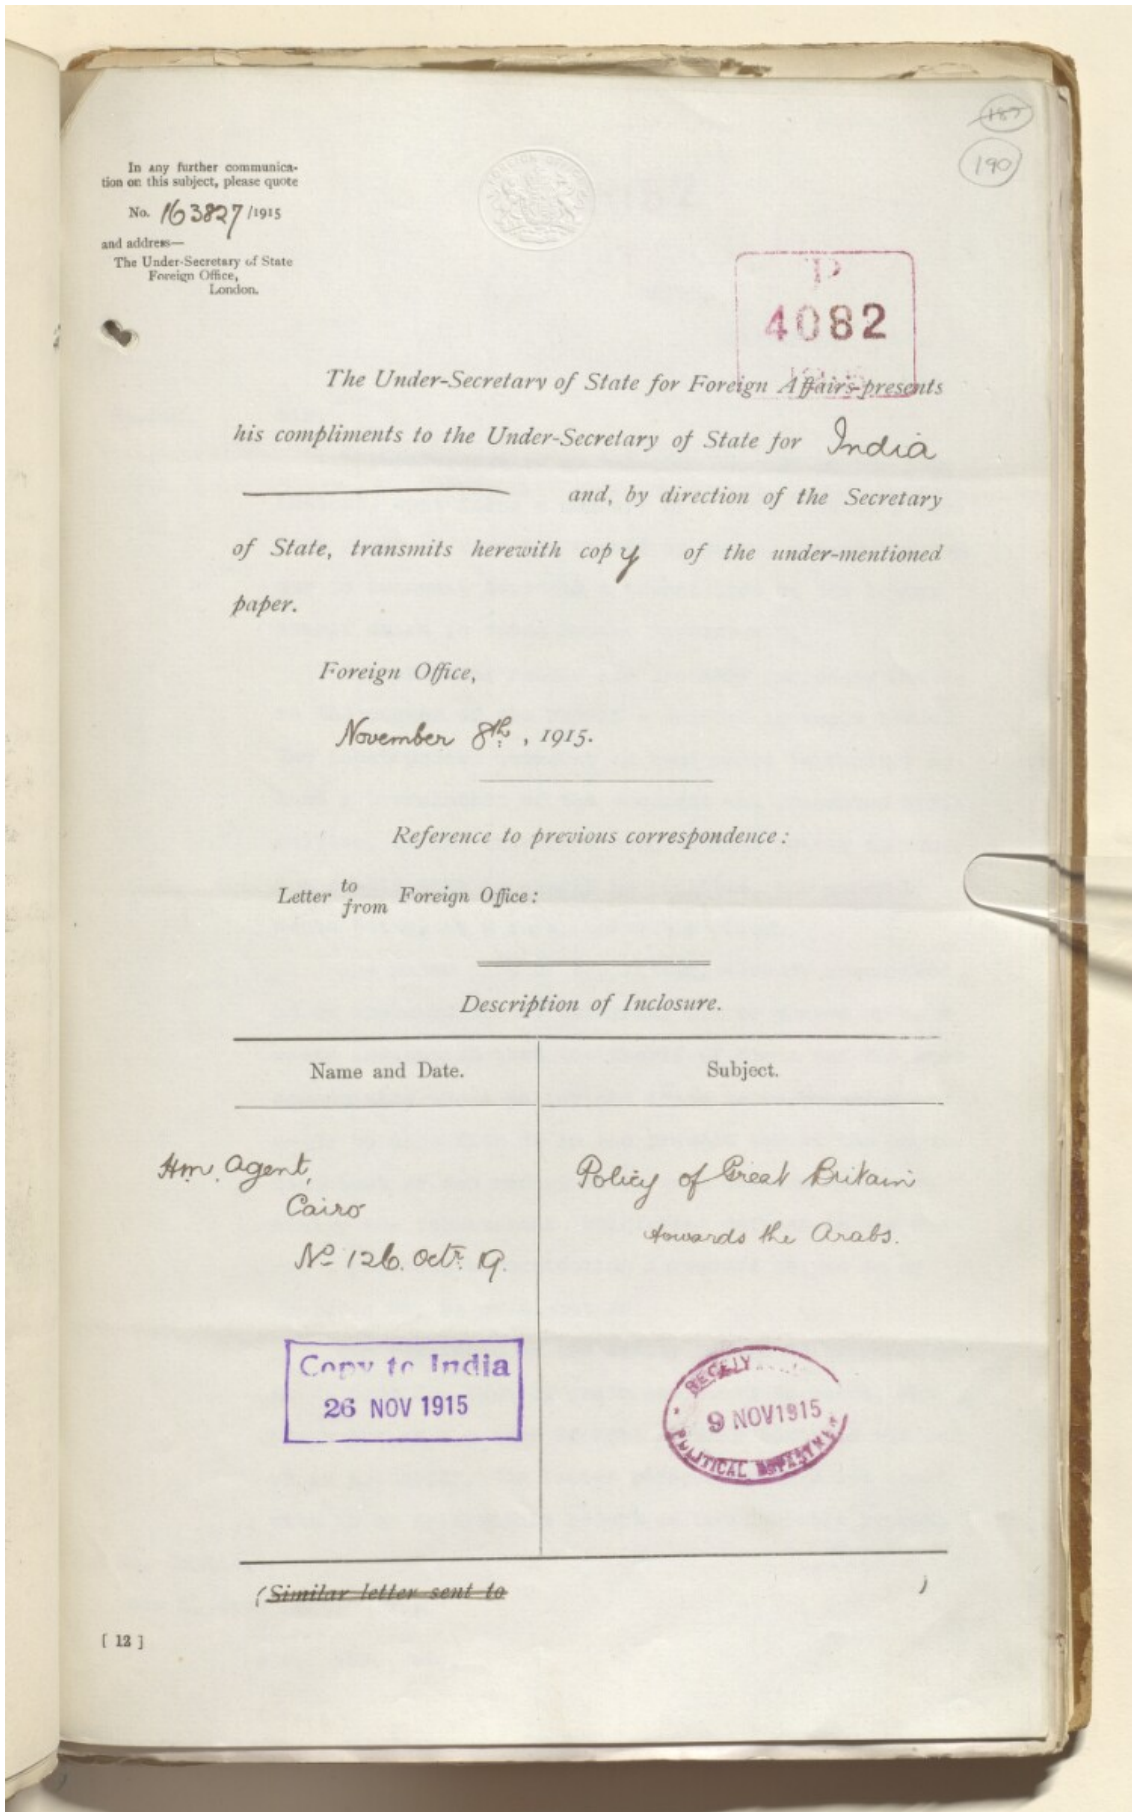 187
190
In any further communica-
tion on this subject, please quote
No. 163827/1915
and address—
The Under-Secretary of State
Foreign Office,
London.
FOREIGN OFFICE
P
4082
The Under-Secretary of State for Foreign Affairs presents
his compliments to the Under-Secretary of State for India
and, by direction of the Secretary
of State, transmits herewith copy of the under-mentioned
paper.
Foreign Office,
November 8th, 1915.
Reference to previous correspondence:
Letter to from Foreign Office:
Description of Inclosure.
Name and Date.
Subject.
Hm. Agent,
Cairo
No 126. Octr. 19.
Policy of Great Britain
towards the Arabs.
Copy to India
26 NOV 1915
9 NOV 1915
POLITICAL DEPARTMEN
(Similar letter sent to )
[ 12 ]